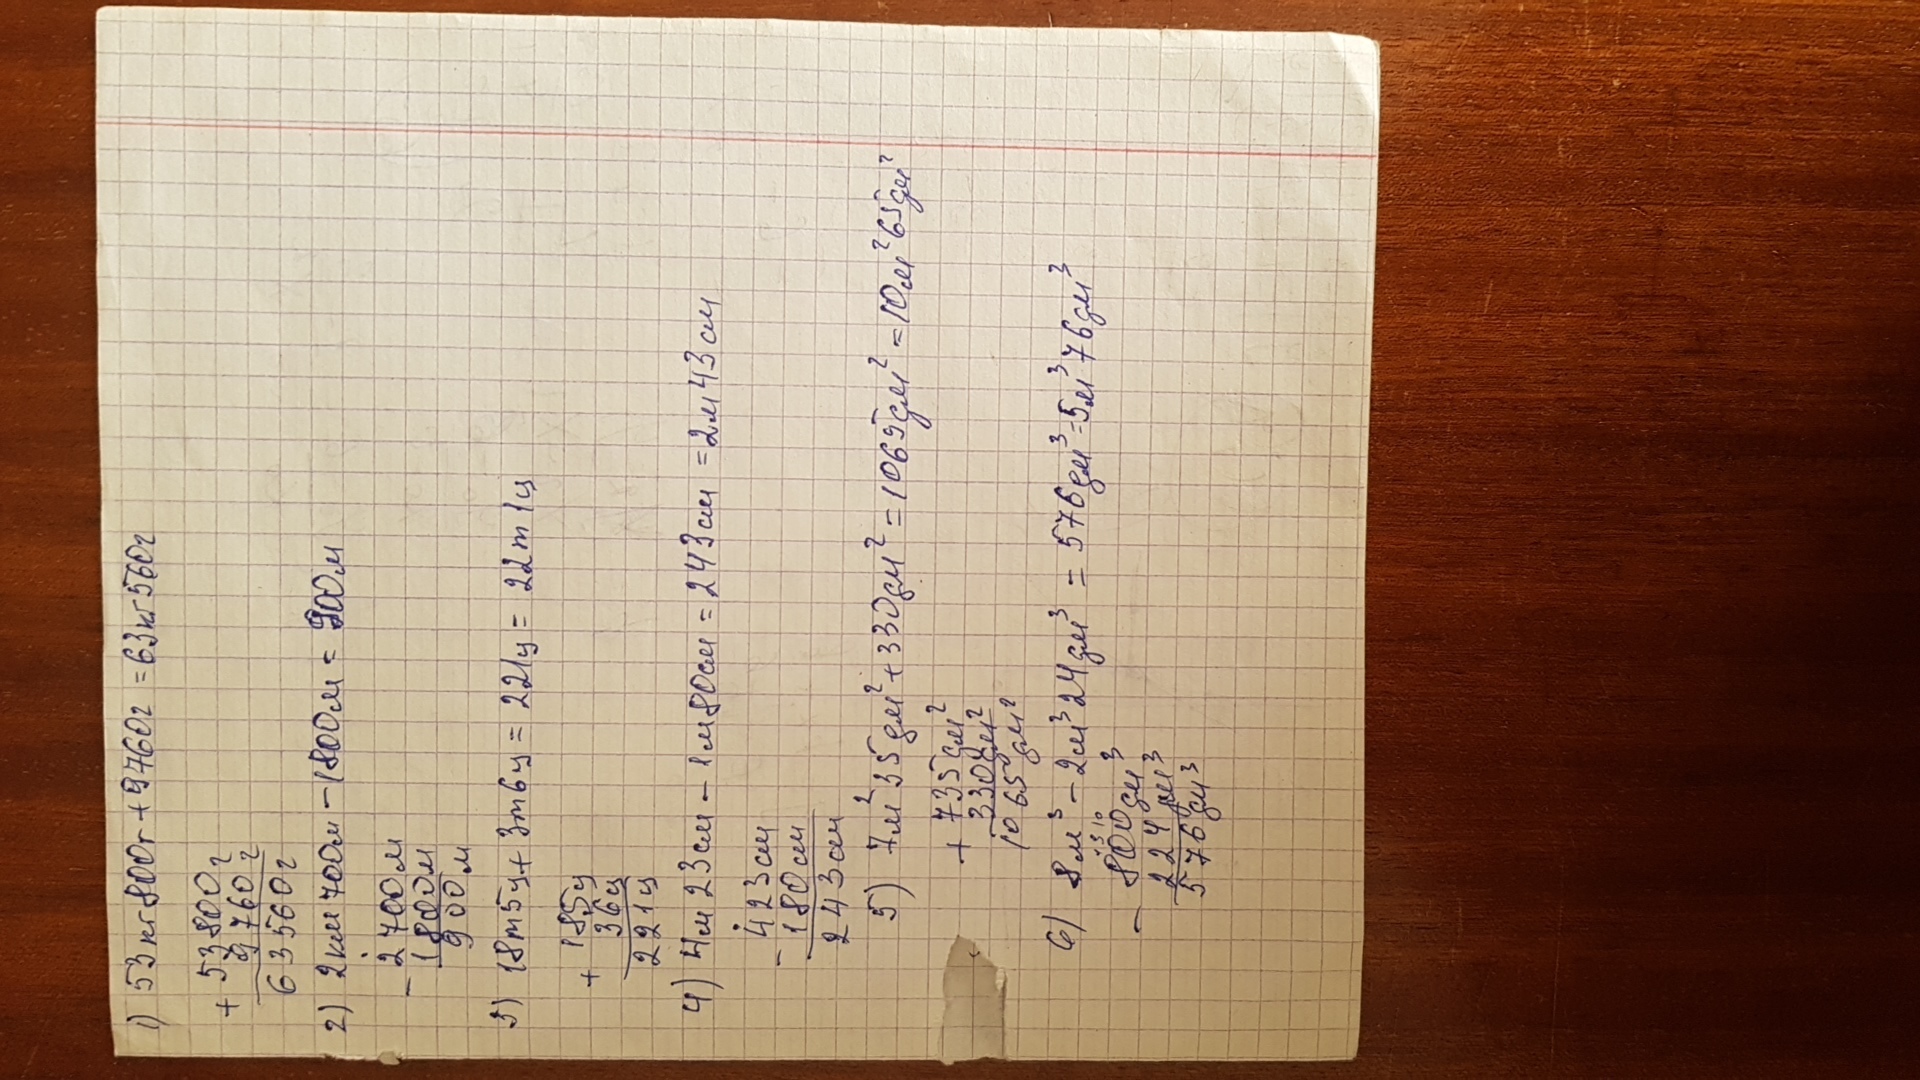 1) 53кг800г+9760г=63кг560г
+ 53800г
9760г
63560г
2) 2км700м-1800м=900м
- 2700м
1800м
900м
3) 18т5ц+3т6ц=221ц=22т1ц
+ 185ц
36ц
221ц
4) 4м23см-1м80см=243см=2м43см
- 423см
180см
243см
5) 7м²35дм²+330дм²=1065дм²=10м²65дм²
+ 735дм²
330дм²
1065дм²
6) 8м³-2м³24дм³=576дм³=5м³76дм³
- 800дм³
224дм³
576дм³